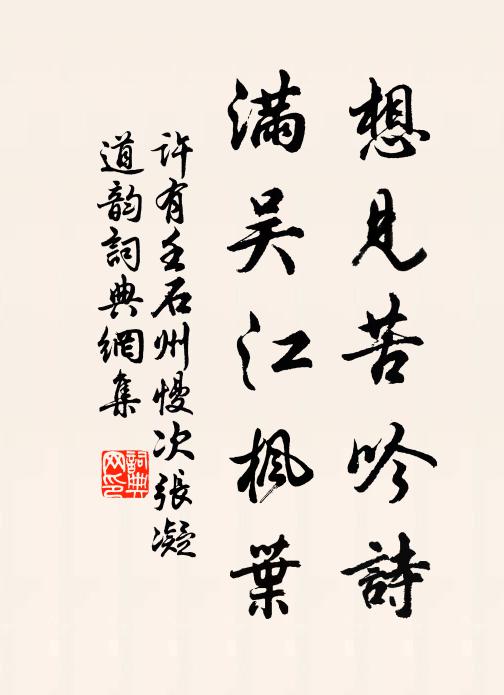 想見苦吟詩
滿吳江楓葉
許有壬石州慢次張凝
道韵詞典網集
詞典
网印